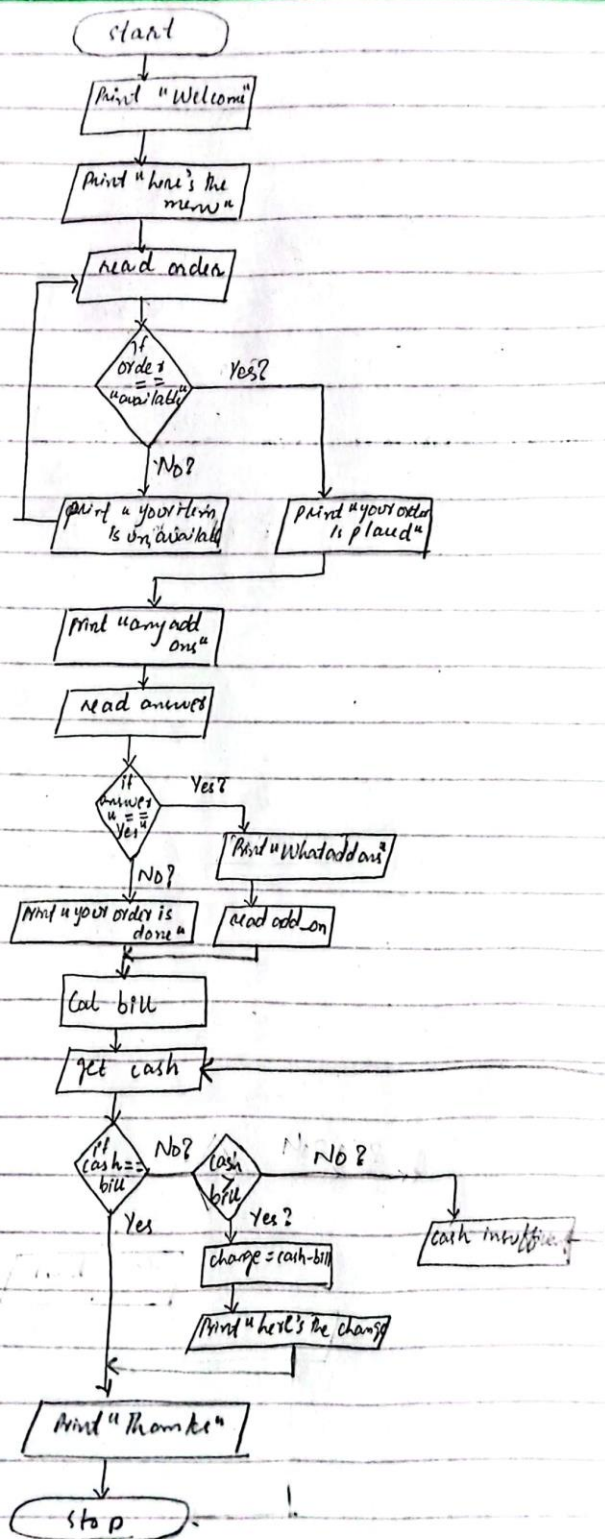 start
Print "Welcome"
Print "here's the
menu"
read order
if
order
==
"available"
Yes?
No?
print "your item
is unavailable
print "your order
is placed"
print "any add
ons"
read answer
if
answer
==
"Yes"
Yes?
No?
Print "What add ons"
Print "your order is
done"
read add_on
Cal bill
get cash
if
cash==
bill
No?
cash
>
bill
No?
Yes
Yes?
cash
change = cash-bill
Print "here's the change
Print "Thanks"
stop